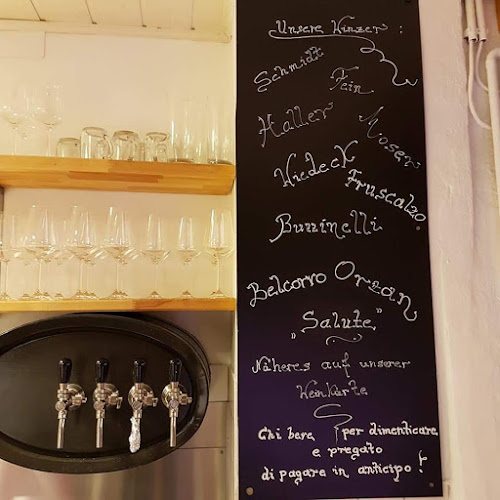 Unsere Winzer :
Schmidt
Fein
Haller
Moser
Hiedeck
Fruscalzo
Buzzinelli
Belcorvo Orzan
„Salute"
Näheres auf unserer
Weinkarte
Chi beve per dimenticare
e pregato
di pagare in anticipo !